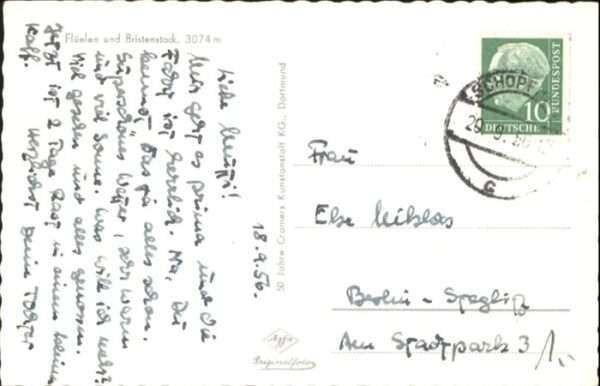 Flüelen und Bristenstock. 3074 m
18.9.56.
Liebe Mutti!
Mir geht es prima und die
Fahrt ist herrlich. Na, Du
kennst das ja alles schon.
Superschönes Wetter, sehr warm
und viel Sonne. Was will ich mehr?
Viel gesehen und alles genossen.
Jetzt ist 2 Tage Rast in einem kleinen
Kaff.
Herzlichst Deine Tochter
50 Jahre Cramers Kunstanstalt KG., Dortmund
Agfa
Originalfoto
SCHOPF
29. 9. 56
c
10
DEUTSCHE
BUNDESPOST
Frau
Else Miklas
Berlin-Steglitz
Am Stadtpark 3
1,-